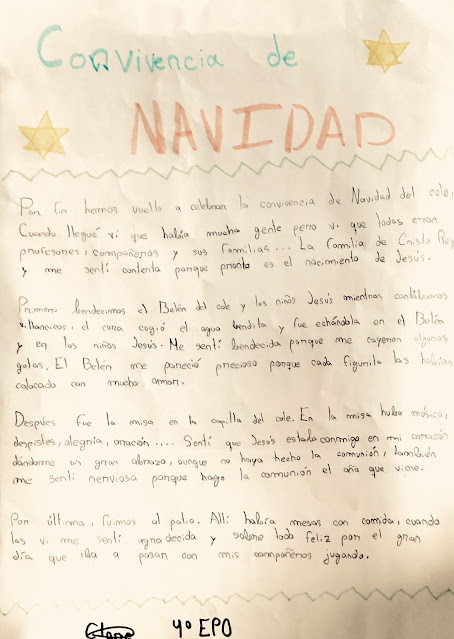 Convivencia de
NAVIDAD
Por fin hemos vuelto a celebrar la convivencia de Navidad del cole.
Cuando llegué vi que había mucha gente pero vi que todas eran
profesores, compañeros y sus familias... La familia de Cristo Rey
y me sentí contenta porque pronto es el nacimiento de Jesús.
Primero bendecimos el Belén del cole y los niños Jesús mientras cantábamos
villancicos, el cura cogió el agua bendita y fue echándola en el Belén
y en los niños Jesús. Me sentí bendecida porque me cayeron algunas
gotas. El Belén me pareció precioso porque cada figurita las habían
colocado con mucho amor.
Después fue la misa en la capilla del cole. En la misa hubo música,
despistes, alegría, oración.... Sentí que Jesús estaba conmigo en mi corazón
dándome un gran abrazo, aunque no haya hecho la comunión, también
me sentí nerviosa porque hago la comunión el año que viene.
Por último, fuimos al patio. Allí había mesas con comida, cuando
las vi me sentí agradecida y sobre todo feliz por el gran
día que iba a pasar con mis compañeros jugando.
4º EPO